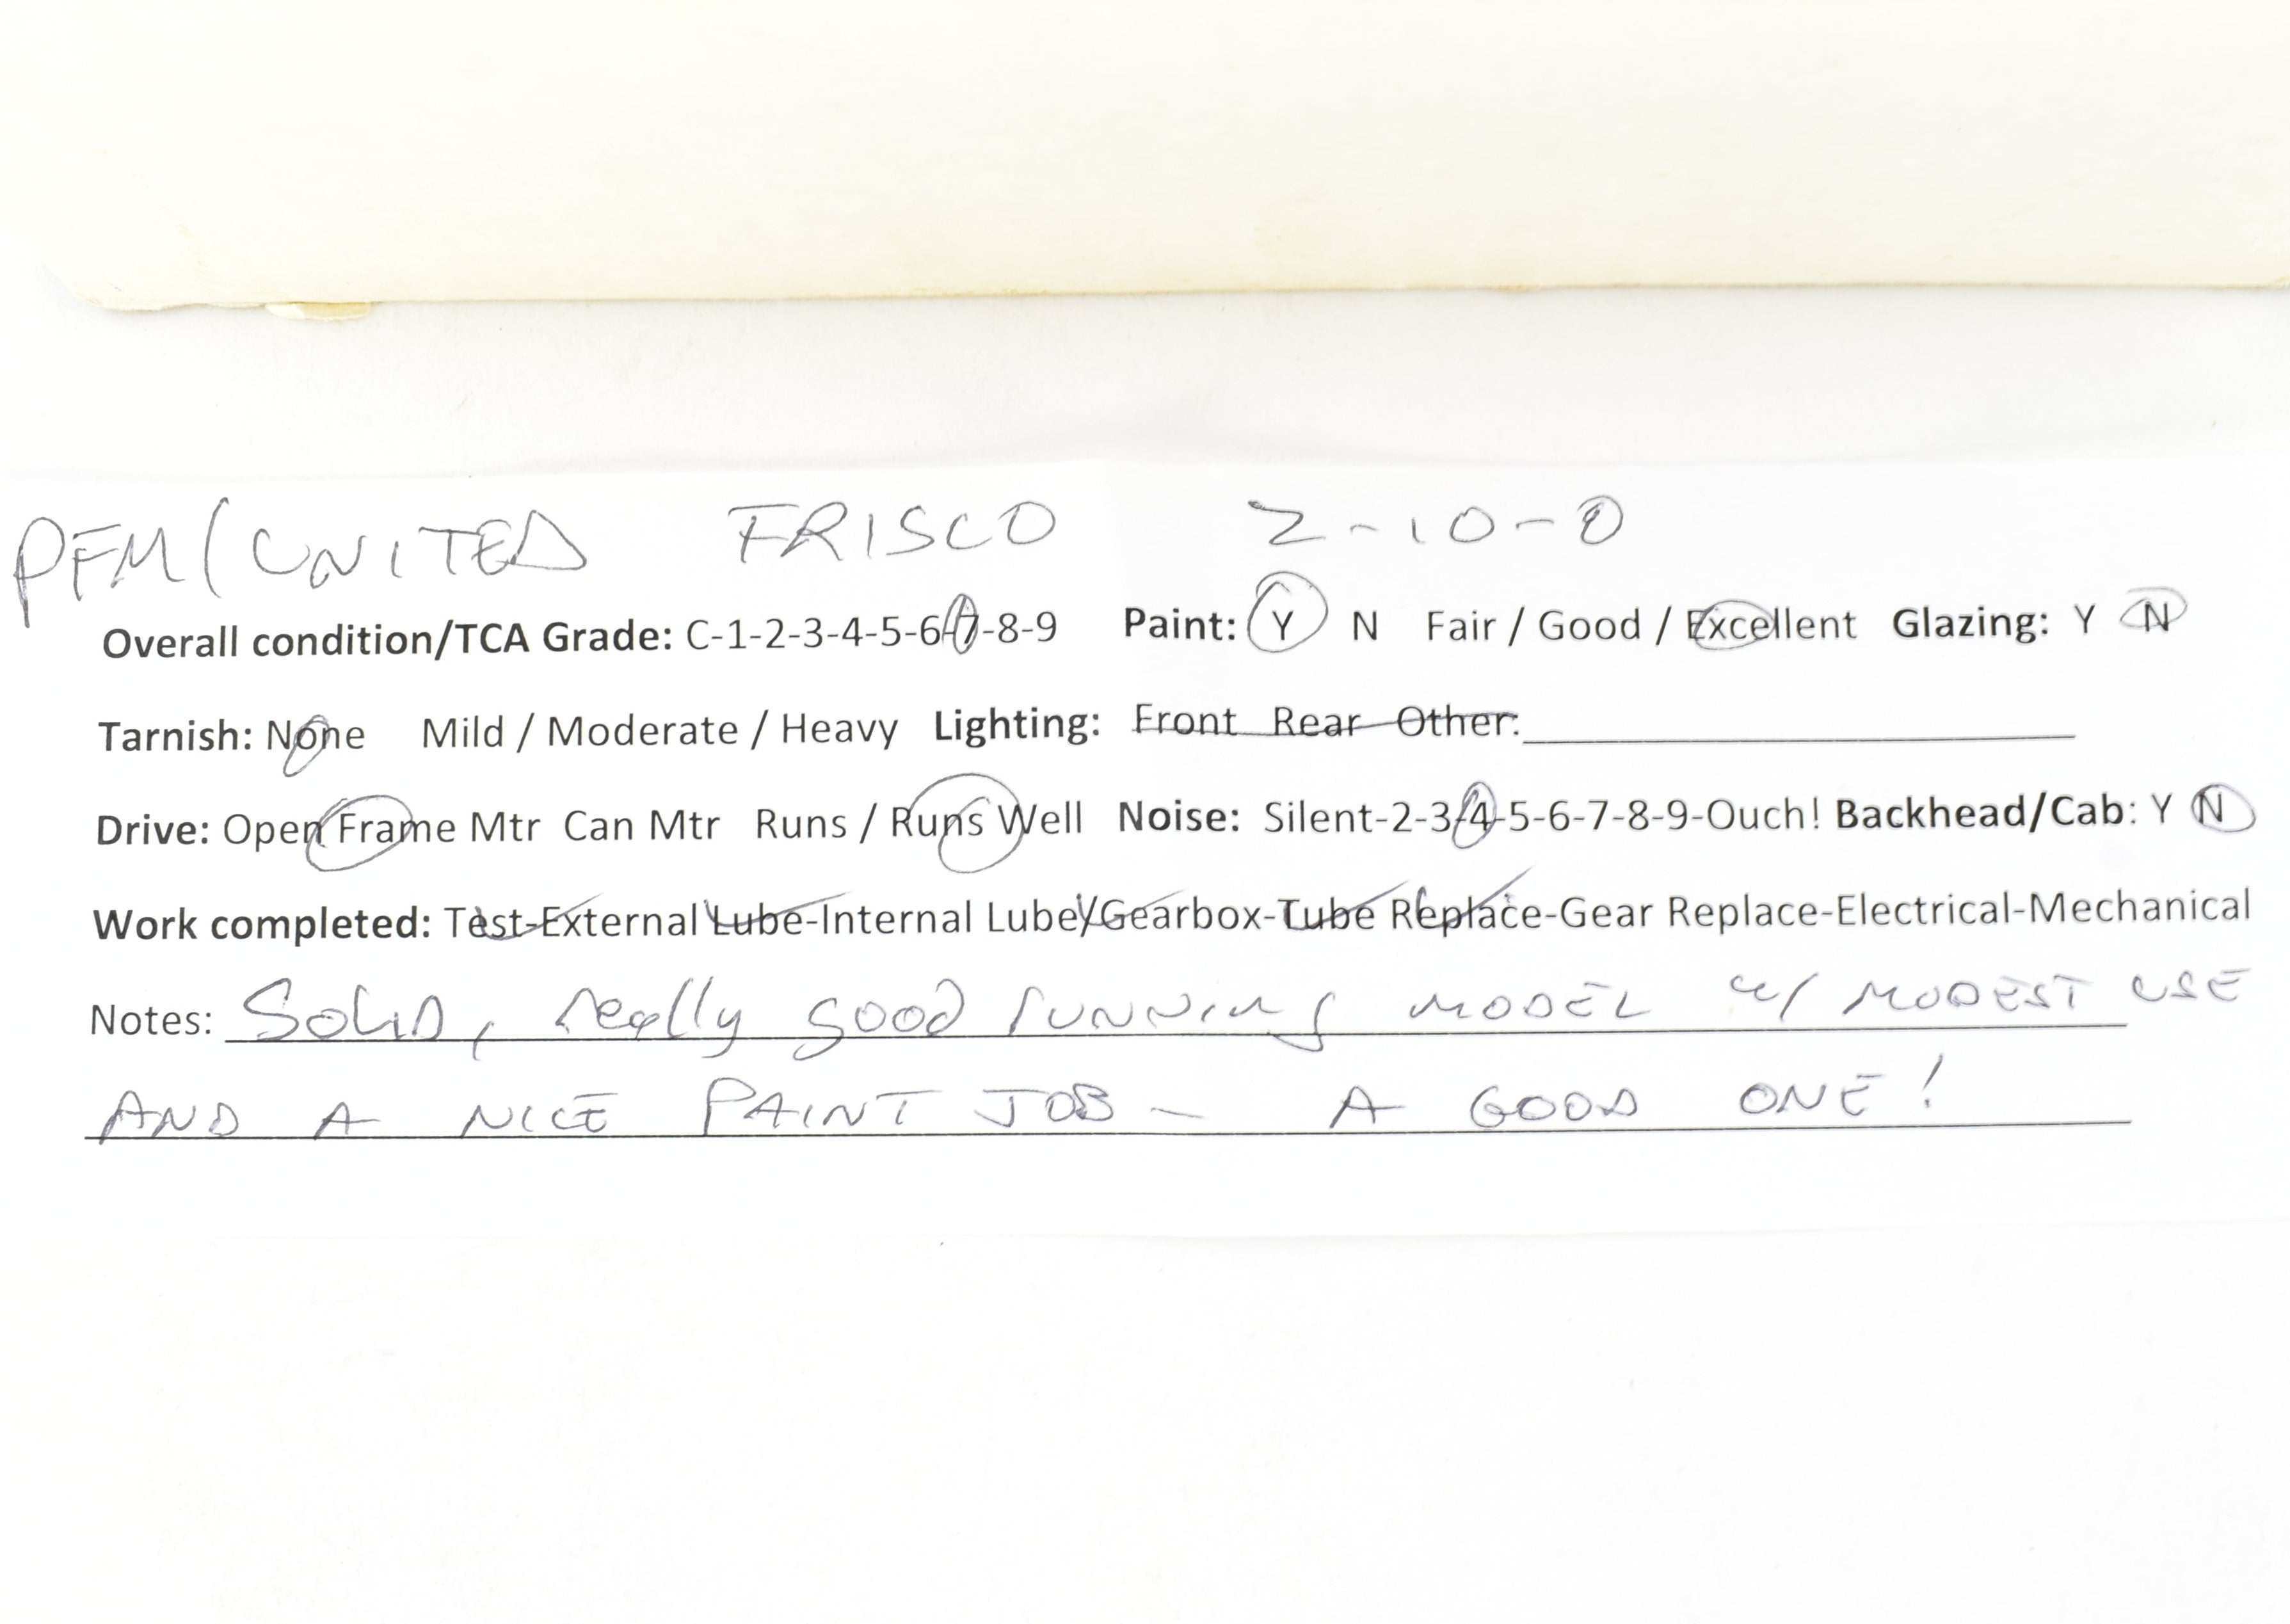 PFM/UNITED FRISCO 2-10-0
Overall condition/TCA Grade: C-1-2-3-4-5-6-7-8-9 Paint: Y N Fair / Good / Excellent Glazing: Y N
Tarnish: None Mild / Moderate / Heavy Lighting: Front Rear Other:
Drive: Open Frame Mtr Can Mtr Runs / Runs Well Noise: Silent-2-3-4-5-6-7-8-9-Ouch! Backhead/Cab: Y N
Work completed: Test-External Lube-Internal Lube/Gearbox-Tube Replace-Gear Replace-Electrical-Mechanical
Notes: SOLID, really good running MODEL w/ MODEST USE
AND A NICE PAINT JOB - A GOOD ONE!